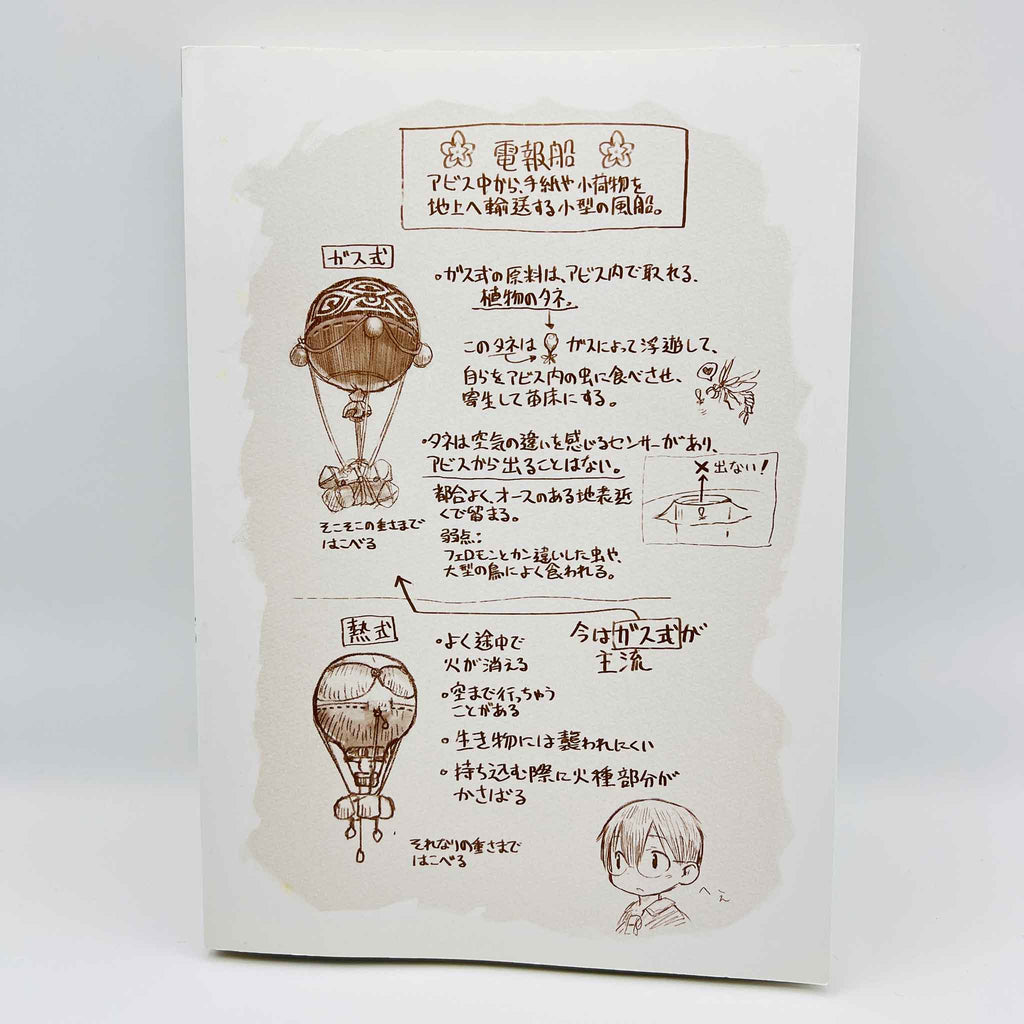 電報船
アビス中から、手紙や小荷物を
地上へ輸送する小型の風船。
ガス式
・ガス式の原料は、アビス内で取れる、
植物のタネ。
このタネは ガスによって浮遊して、
自らをアビス内の虫に食べさせ、
寄生して苗床にする。
・タネは空気の違いを感じるセンサーがあり、
アビスから出ることはない。
×出ない!
都合よく、オースのある地表近
くで留まる。
弱点:
フェロモンとカン違いした虫や、
大型の鳥によく食われる。
そこそこの重さまで
はこべる
今はガス式が
主流
熱式
・よく途中で
火が消える
・空まで行っちゃう
ことがある
・生き物には襲われにくい
・持ち込む際に火種部分が
かさばる
それなりの重さまで
はこべる
へぇ